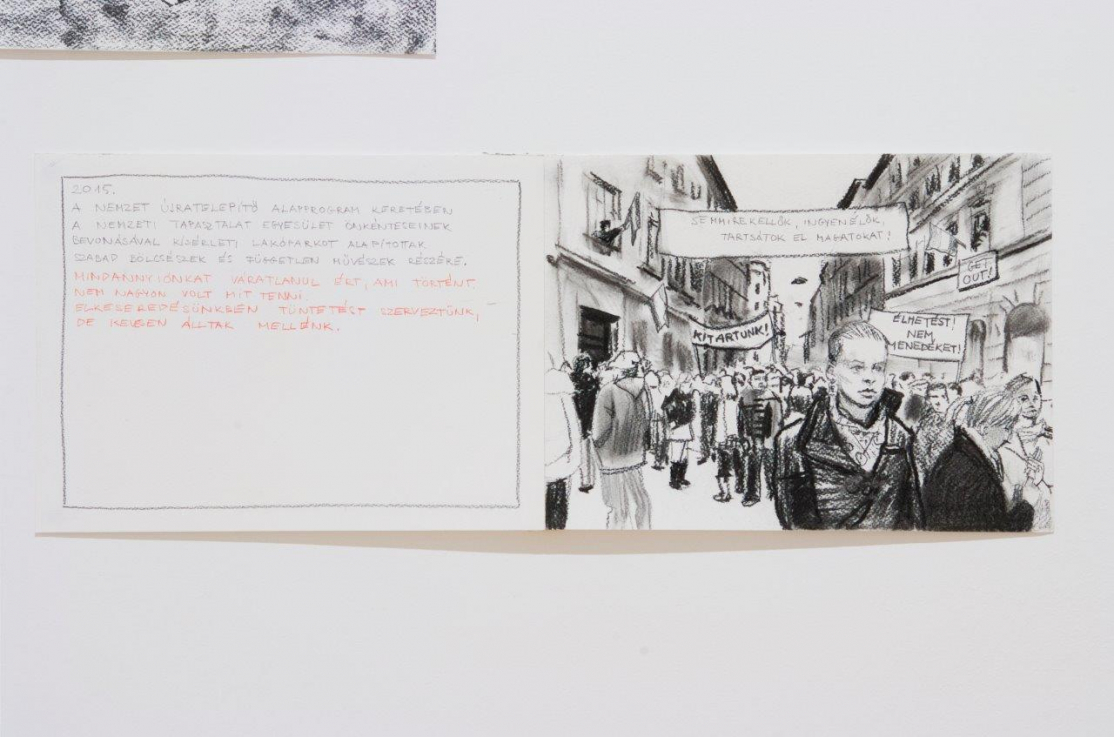 2015.
A NEMZET ÚJRATELEPÍTŐ ALAPPROGRAM KERETÉBEN
A NEMZETI TAPASZTALAT EGYESÜLET ÖNKÉNTESEINEK
BEVONÁSÁVAL KÍSÉRLETI LAKÓPARKOT ALAPÍTOTTAK
SZABAD BÖLCSÉSZEK ÉS FÜGGETLEN MŰVÉSZEK RÉSZÉRE.
MINDANNYIÓNKAT VÁRATLANUL ÉRT, AMI TÖRTÉNT.
NEM NAGYON VOLT MIT TENNI.
ELKESEREDÉSÜNKBEN TÜNTETÉST SZERVEZTÜNK,
DE KEVESEN ÁLLTAK MELLÉNK.
SEMMIREKELLŐK, INGYENÉLŐK,
TARTSÁTOK EL MAGATOKAT!
GET
OUT!
KITARTUNK!
ÉLHETÉST!
NEM
MENEDÉKET!